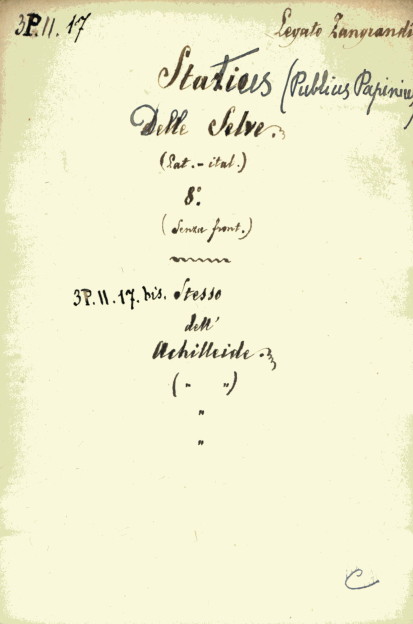 3P.11.17 Legato Zangrandi
Statius (Publius Papinius
Delle Selve.
(Lat.-ital.)
8º.
(Senza front.)
3P.11.17. bis. Stesso
dell'
Achilleide.
(" ")
"
"
C